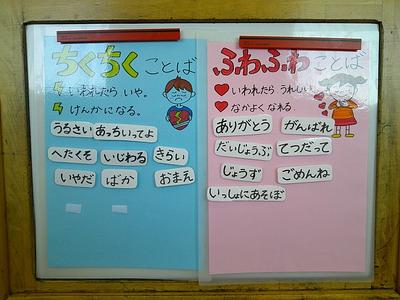 ちくちくことば
いわれたら いや。
けんかになる。
うるさい あっちいってよ
へたくそ いじわる きらい
いやだ ばか おまえ
ふわふわことば
いわれたら うれしい
なかよくなれる.
ありがとう がんばれ
だいじょうぶ てつだって
じょうず ごめんね
いっしょにあそぼ